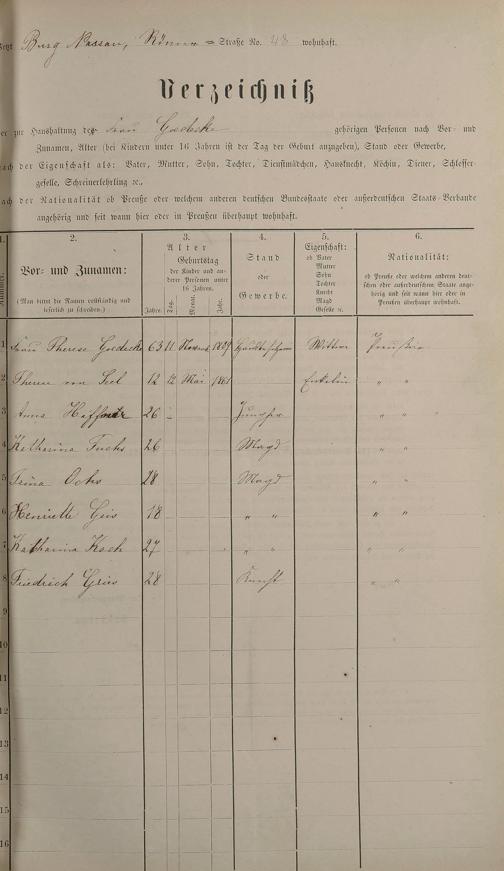 Burg Nassau, Römer = Straße No. 48 wohnhaft.
Verzeichniß
der zur Haushaltung der Frau Goedecke gehörigen Personen nach Vor- und
Zunamen, Alter (bei Kindern unter 16 Jahren ist der Tag der Geburt anzugeben), Stand oder Gewerbe,
nach der Eigenschaft als: Vater, Mutter, Sohn, Tochter, Dienstmädchen, Hausknecht, Köchin, Diener, Schlosser-
geselle, Schreinerlehrling ꝛc.,
nach der Nationalität ob Preuße oder welchem anderen deutschen Bundesstaate oder außerdeutschen Staats-Verbande
angehörig und seit wann hier oder in Preußen überhaupt wohnhaft.
1. 2. 3. 4. 5. 6.
Nummer. Vor- und Zunamen: (Man bittet die Namen vollständig und leserlich zu schreiben.)
Alter Geburtstag der Kinder und anderer Personen unter 16 Jahren. Jahre. Tag. Monat. Jahr.
Stand oder Gewerbe.
Eigenschaft: ob Vater Mutter Sohn Tochter Knecht Magd Geselle ꝛc.
Nationalität: ob Preuße oder welchem andern deutschen oder außerdeutschen Staate angehörig und seit wann hier oder in Preußen überhaupt wohnhaft.
1 Frau Therese Goedecke 63 11 Wittwe
2 Therese von Seel 12 12 Mai 1861 Enkelin " "
3 Anna 26 Jungfer " "
4 Katharina Fuchs 26 Magd " "
5 Ochs 28 Magd " "
6 Henriette 18 " " " "
7 Katharina Koch 27 " " " "
8 Friedrich 28 Knecht " "
9
10
11
12
13
14
15
16